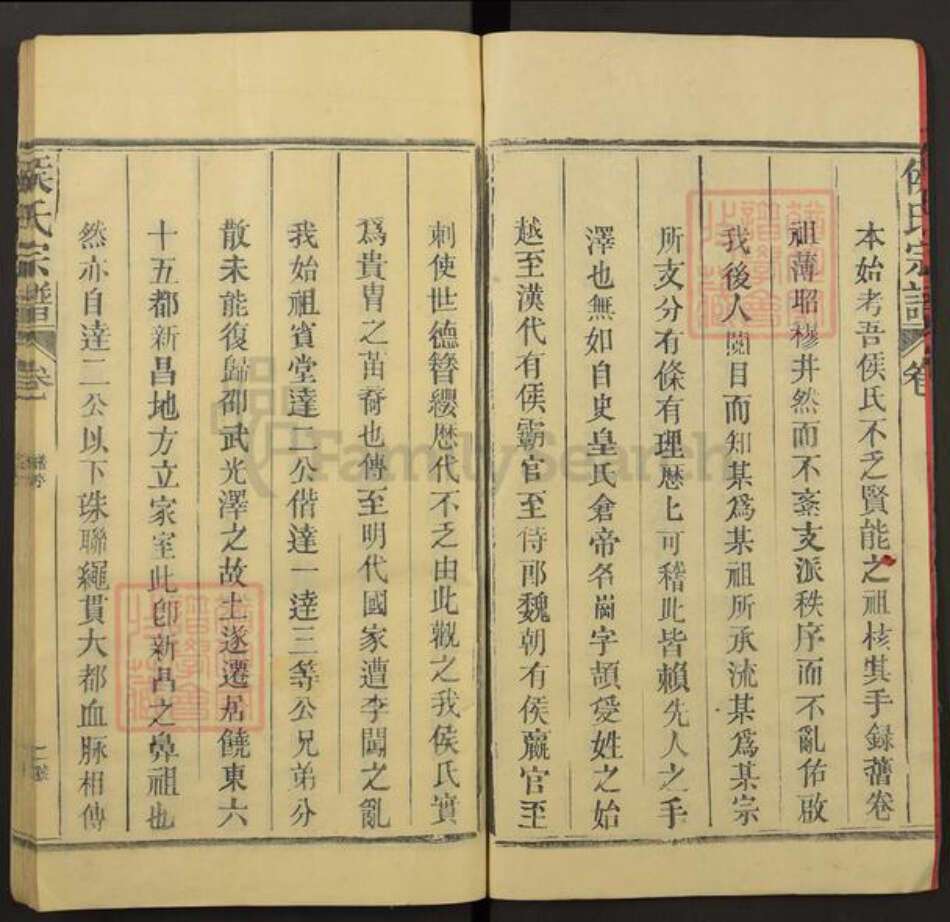 侯氏宗譜
卷
本始考吾侯氏不乏賢能之祖核其手錄舊卷
祖薄昭穆井然而不紊支派秩序而不亂佑啟
我後人閱目而知某爲某祖所承流某爲某宗
所支分有條有理歷歷可稽此皆賴先人之手
澤也無如自史皇氏倉帝名崗字頡受姓之始
越至漢代有侯霸官至待郎魏朝有侯嬴官至
刺使世德簪纓歷代不乏由此觀之我侯氏實
爲貴胄之苗裔也傳至明代國家遭李闖之亂
我始祖賓堂達二公偕達一達三等公兄弟分
散未能復歸邵武光澤之故土遂遷居饒東六
十五都新昌地方立家室此即新昌之鼻祖也
然亦自達二公以下珠聯繩貫大都血脉相傳
侯氏宗譜
卷
FamilySearch